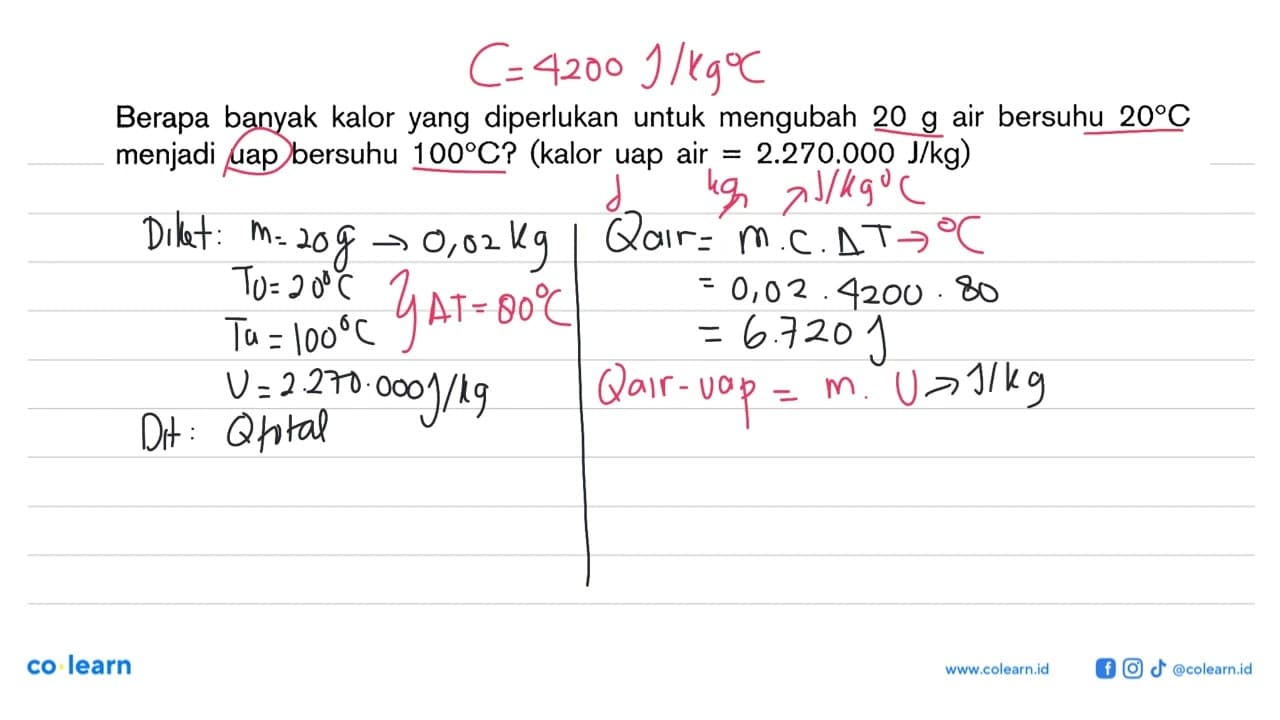 C = 4200 J/kg°C
Berapa banyak kalor yang diperlukan untuk mengubah 20 g air bersuhu 20°C
menjadi uap bersuhu 100°C? (kalor uap air = 2.270.000 J/kg)
Diket: m = 20 g → 0,02 kg
T0 = 20°C
Ta = 100°C
} ΔT = 80°C
U = 2.270.000 J/kg
Dit: Qtotal
J kg → J/kg°C
Qair = m . C . ΔT → °C
= 0,02 . 4200 . 80
= 6.720 J
Qair-uap = m. U → J/kg
co·learn
www.colearn.id
@colearn.id